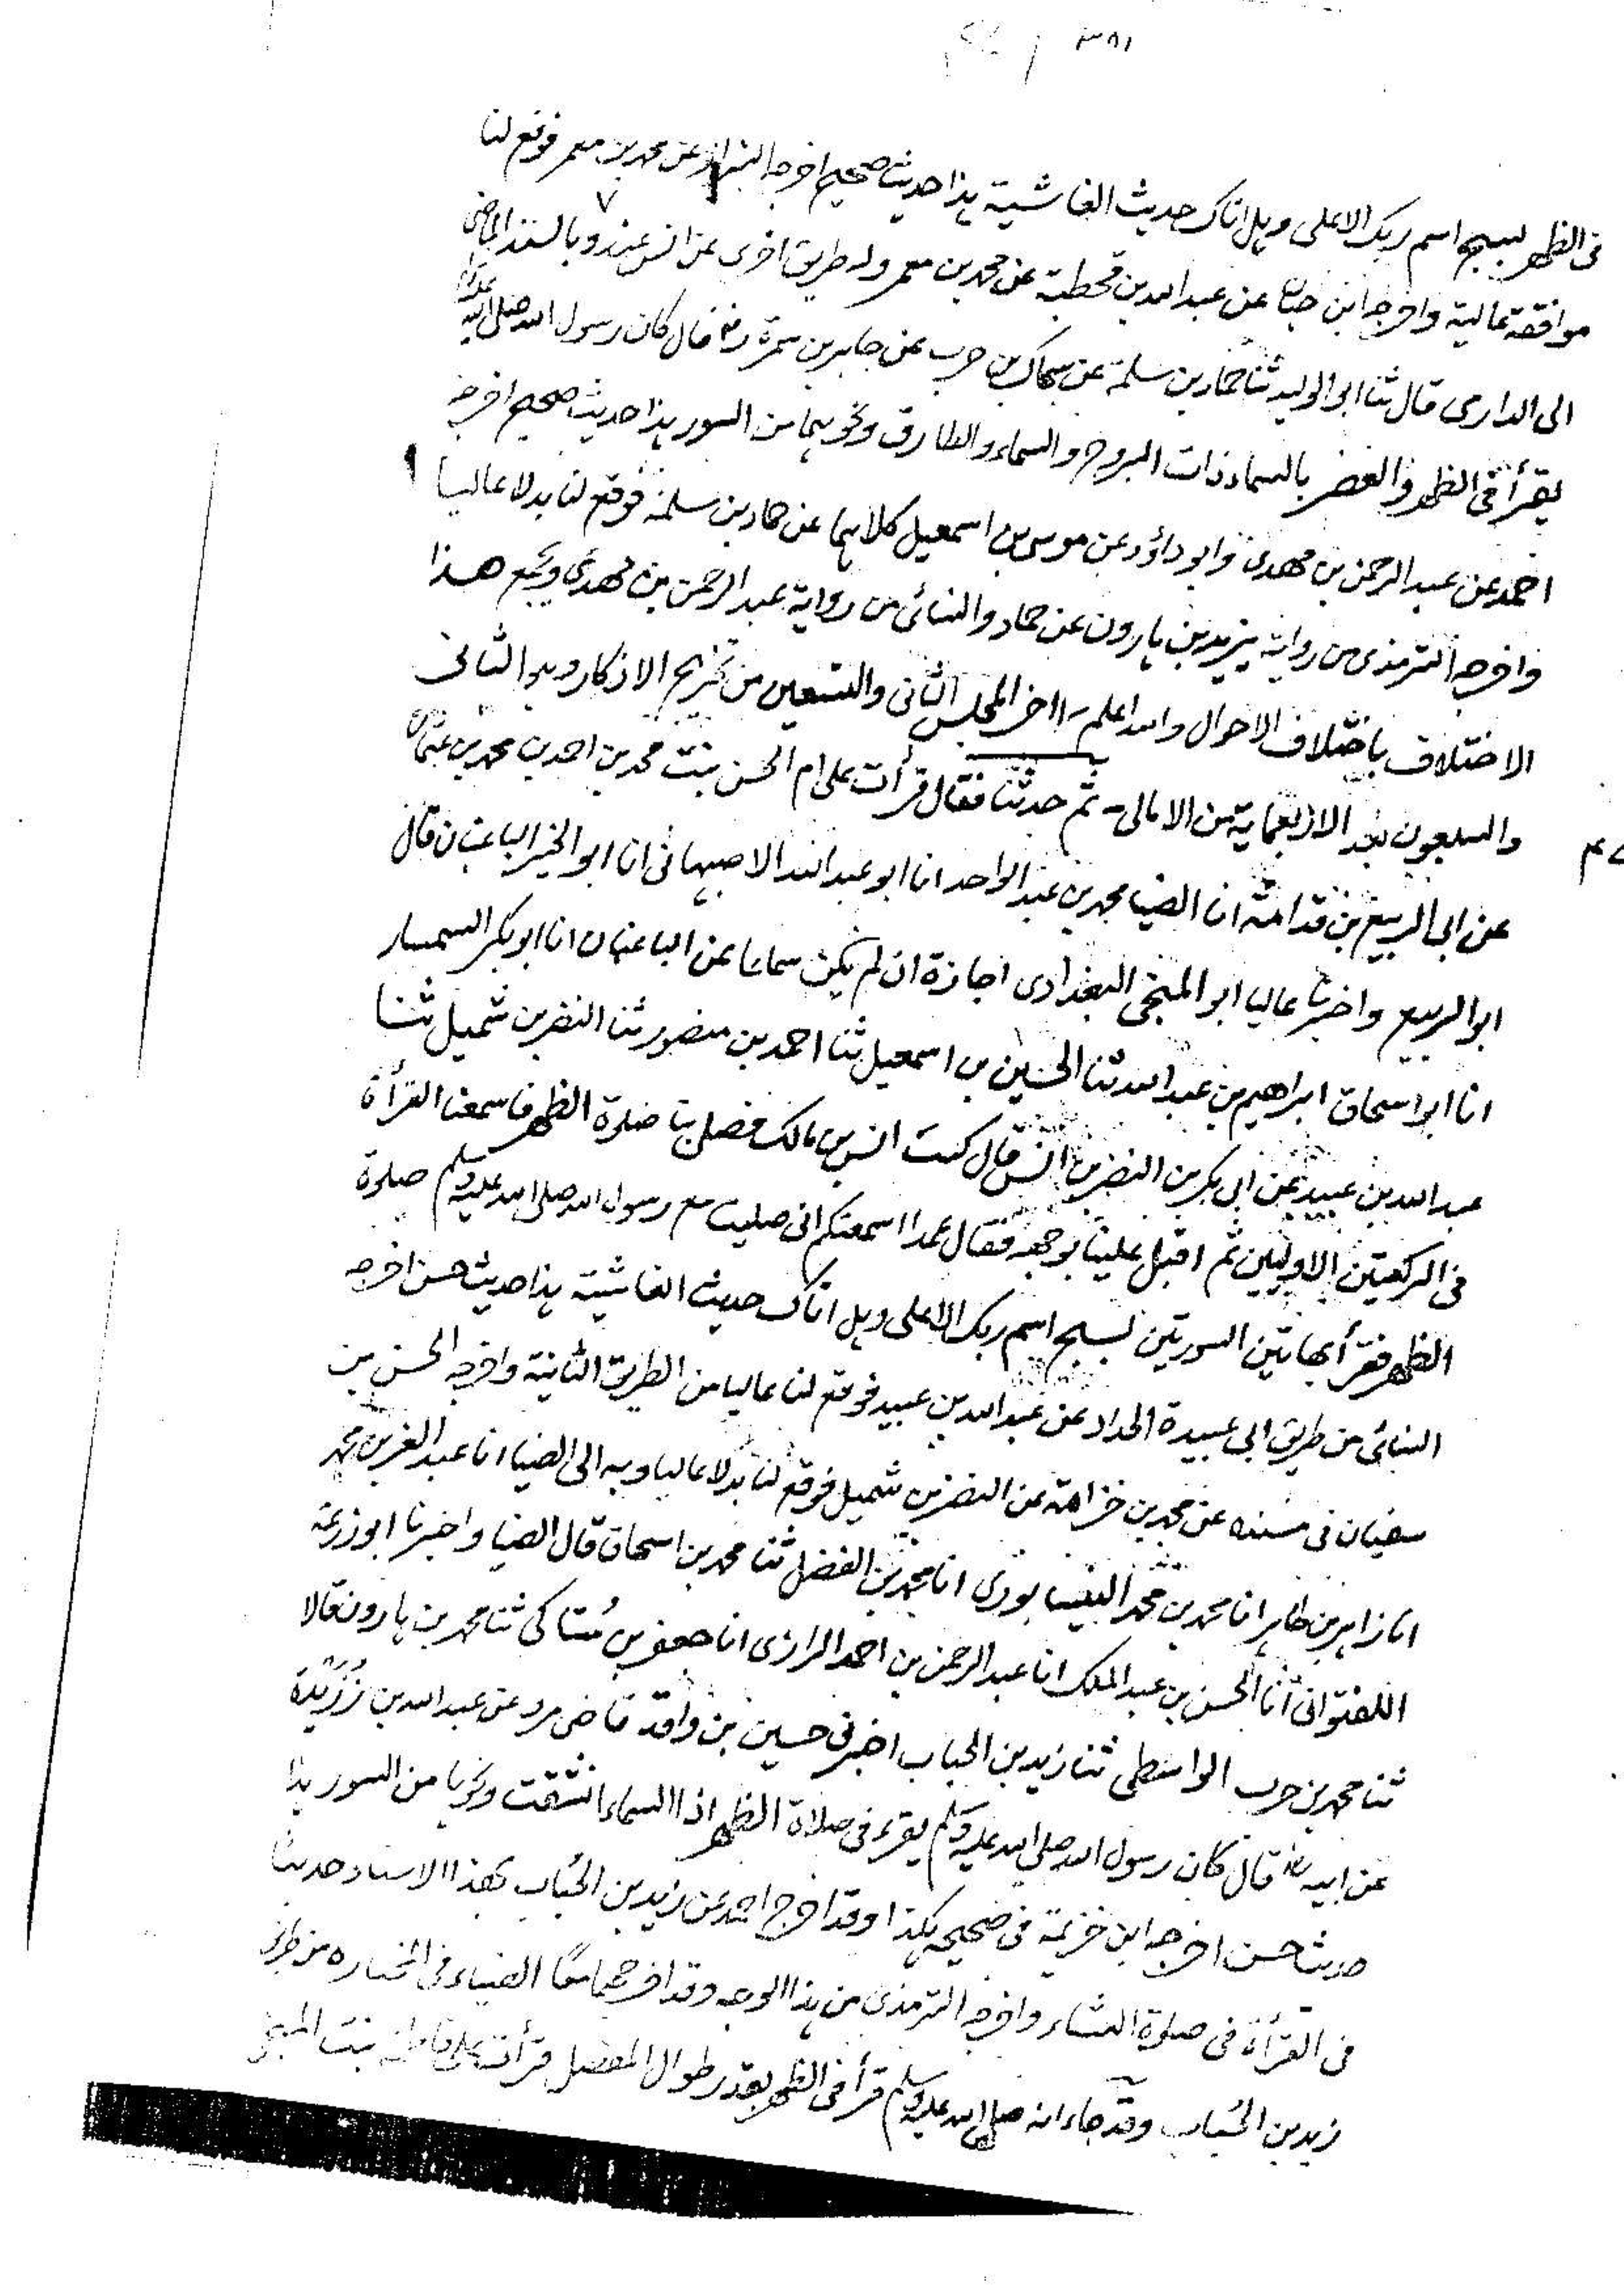 ٣٨١
فى الظهر بسبح اسم ربك الاعلى وہل اتاک حديث الغاشية ہذا حديث صحيح اخرجہ البزار عن محمد بن معمر فوقع لنا
موافقة عالية واخرجہ ابن حبان عن عبد الله بن قحطبة عن محمد بن معمر ولہ طريق اخرى عن انس عنده وبالسند الماضى
الى الدارمى قال ثنا ابو الوليد ثنا حماد بن سلمة عن سماک بن حرب عن جابر بن سمرة رض قال كان رسول الله صلى الله عليہ
يقرأ فى الظهر والعصر بالسماء ذات البروج والسماء والطارق ونحوہما من السور ہذا حديث صحيح اخرجہ
احمد عن عبد الرحمن بن مهدى وابو داؤد عن موسى بن اسمعيل كلاہما عن حماد بن سلمة فوقع لنا بدلا عاليا
واخرجہ الترمذى من رواية يزيد بن ہارون عن حماد والنسائى من رواية عبد الرحمن بن مهدى ويجمع هذا
الاختلاف باختلاف الاحوال والله اعلم - اخر المجلس الثانى والتسعين من تخريج الاذكار وہو الثانى
والسبعون بعد الاربعماية من الامالى - ثم حدثنا فقال قرأت على ام الحسن بنت محمد بن احمد بن محمد بن عثمان
عن ابى الربيع بن قدامة انا الضيا محمد بن عبد الواحد انا ابو عبد الله الاصبهانى انا ابو الخير الباغبان قال
ابو الربيع واخبرنا عاليا ابو المنجى البغدادى اجازة ان لم يكن سماعا عن الباغبان انا ابو بكر السمسار
انا ابو اسحاق ابراهيم بن عبد الله ثنا الحسين بن اسمعيل ثنا احمد بن منصور ثنا النضر بن شميل ثنا
عبد الله بن عبيد عن ابى بكر بن النضر بن انس قال كنت انس بن مالک فصلى بنا صلوة الظهر فاسمعنا القرأة
فى الركعتين الاوليين ثم اقبل علينا بوجهه فقال عمدا اسمعتكم انى صليت مع رسول الله صلى الله عليہ وسلم صلوة
الظهر فقرأ بهاتين السورتين بسبح اسم ربك الاعلى وہل اتاک حديث الغاشية ہذا حديث حسن اخرجہ
النسائى من طريق ابى عبيدة الحداد عن عبد الله بن عبيد فوقع لنا عاليا من الطريق الثانية واخرجہ الحسن بن
سفيان فى مسنده عن محمد بن خزامة عن النضر بن شميل فوقع لنا بدلا عاليا وبہ الى الضيا انا عبد العزيز بن محمد
انا زاہر بن طاہر انا محمد بن محمد النيسابورى انا محمد بن الفضل ثنا محمد بن اسحاق قال الضيا واخبرنا ابو زرعة
اللفتوانى انا الحسن بن عبد الملک انا عبد الرحمن بن احمد الرازى انا جعفر بن فناكى ثنا محمد بن ہارون قالا
ثنا محمد بن حرب الواسطى ثنا زيد بن الحباب اخبرنى حسين بن واقد قاضى مرو عن عبد الله بن بُرَيْدة
عن ابيہ رض قال كان رسول الله صلى الله عليہ وسلم يقرء فى صلاة الظهر اذا السماء انشقت ونحوہا من السور ہذا
حديث حسن اخرجہ ابن خزيمة فى صحيحہ ہكذا وقد اخرج احمد عن زيد بن الحُباب بهذا الاسناد حديثا
فى القرأة فى صلوة العشاء واخرجہ الترمذى من ہذا الوجہ وقد اخرجهما معًا الضياء فى المختاره من طريق
زيد بن الحُباب وقد جاء انہ صلى الله عليہ وسلم قرأ فى الظهر بقدر طوال المفصل قرأت على فاطمة بنت المنجى